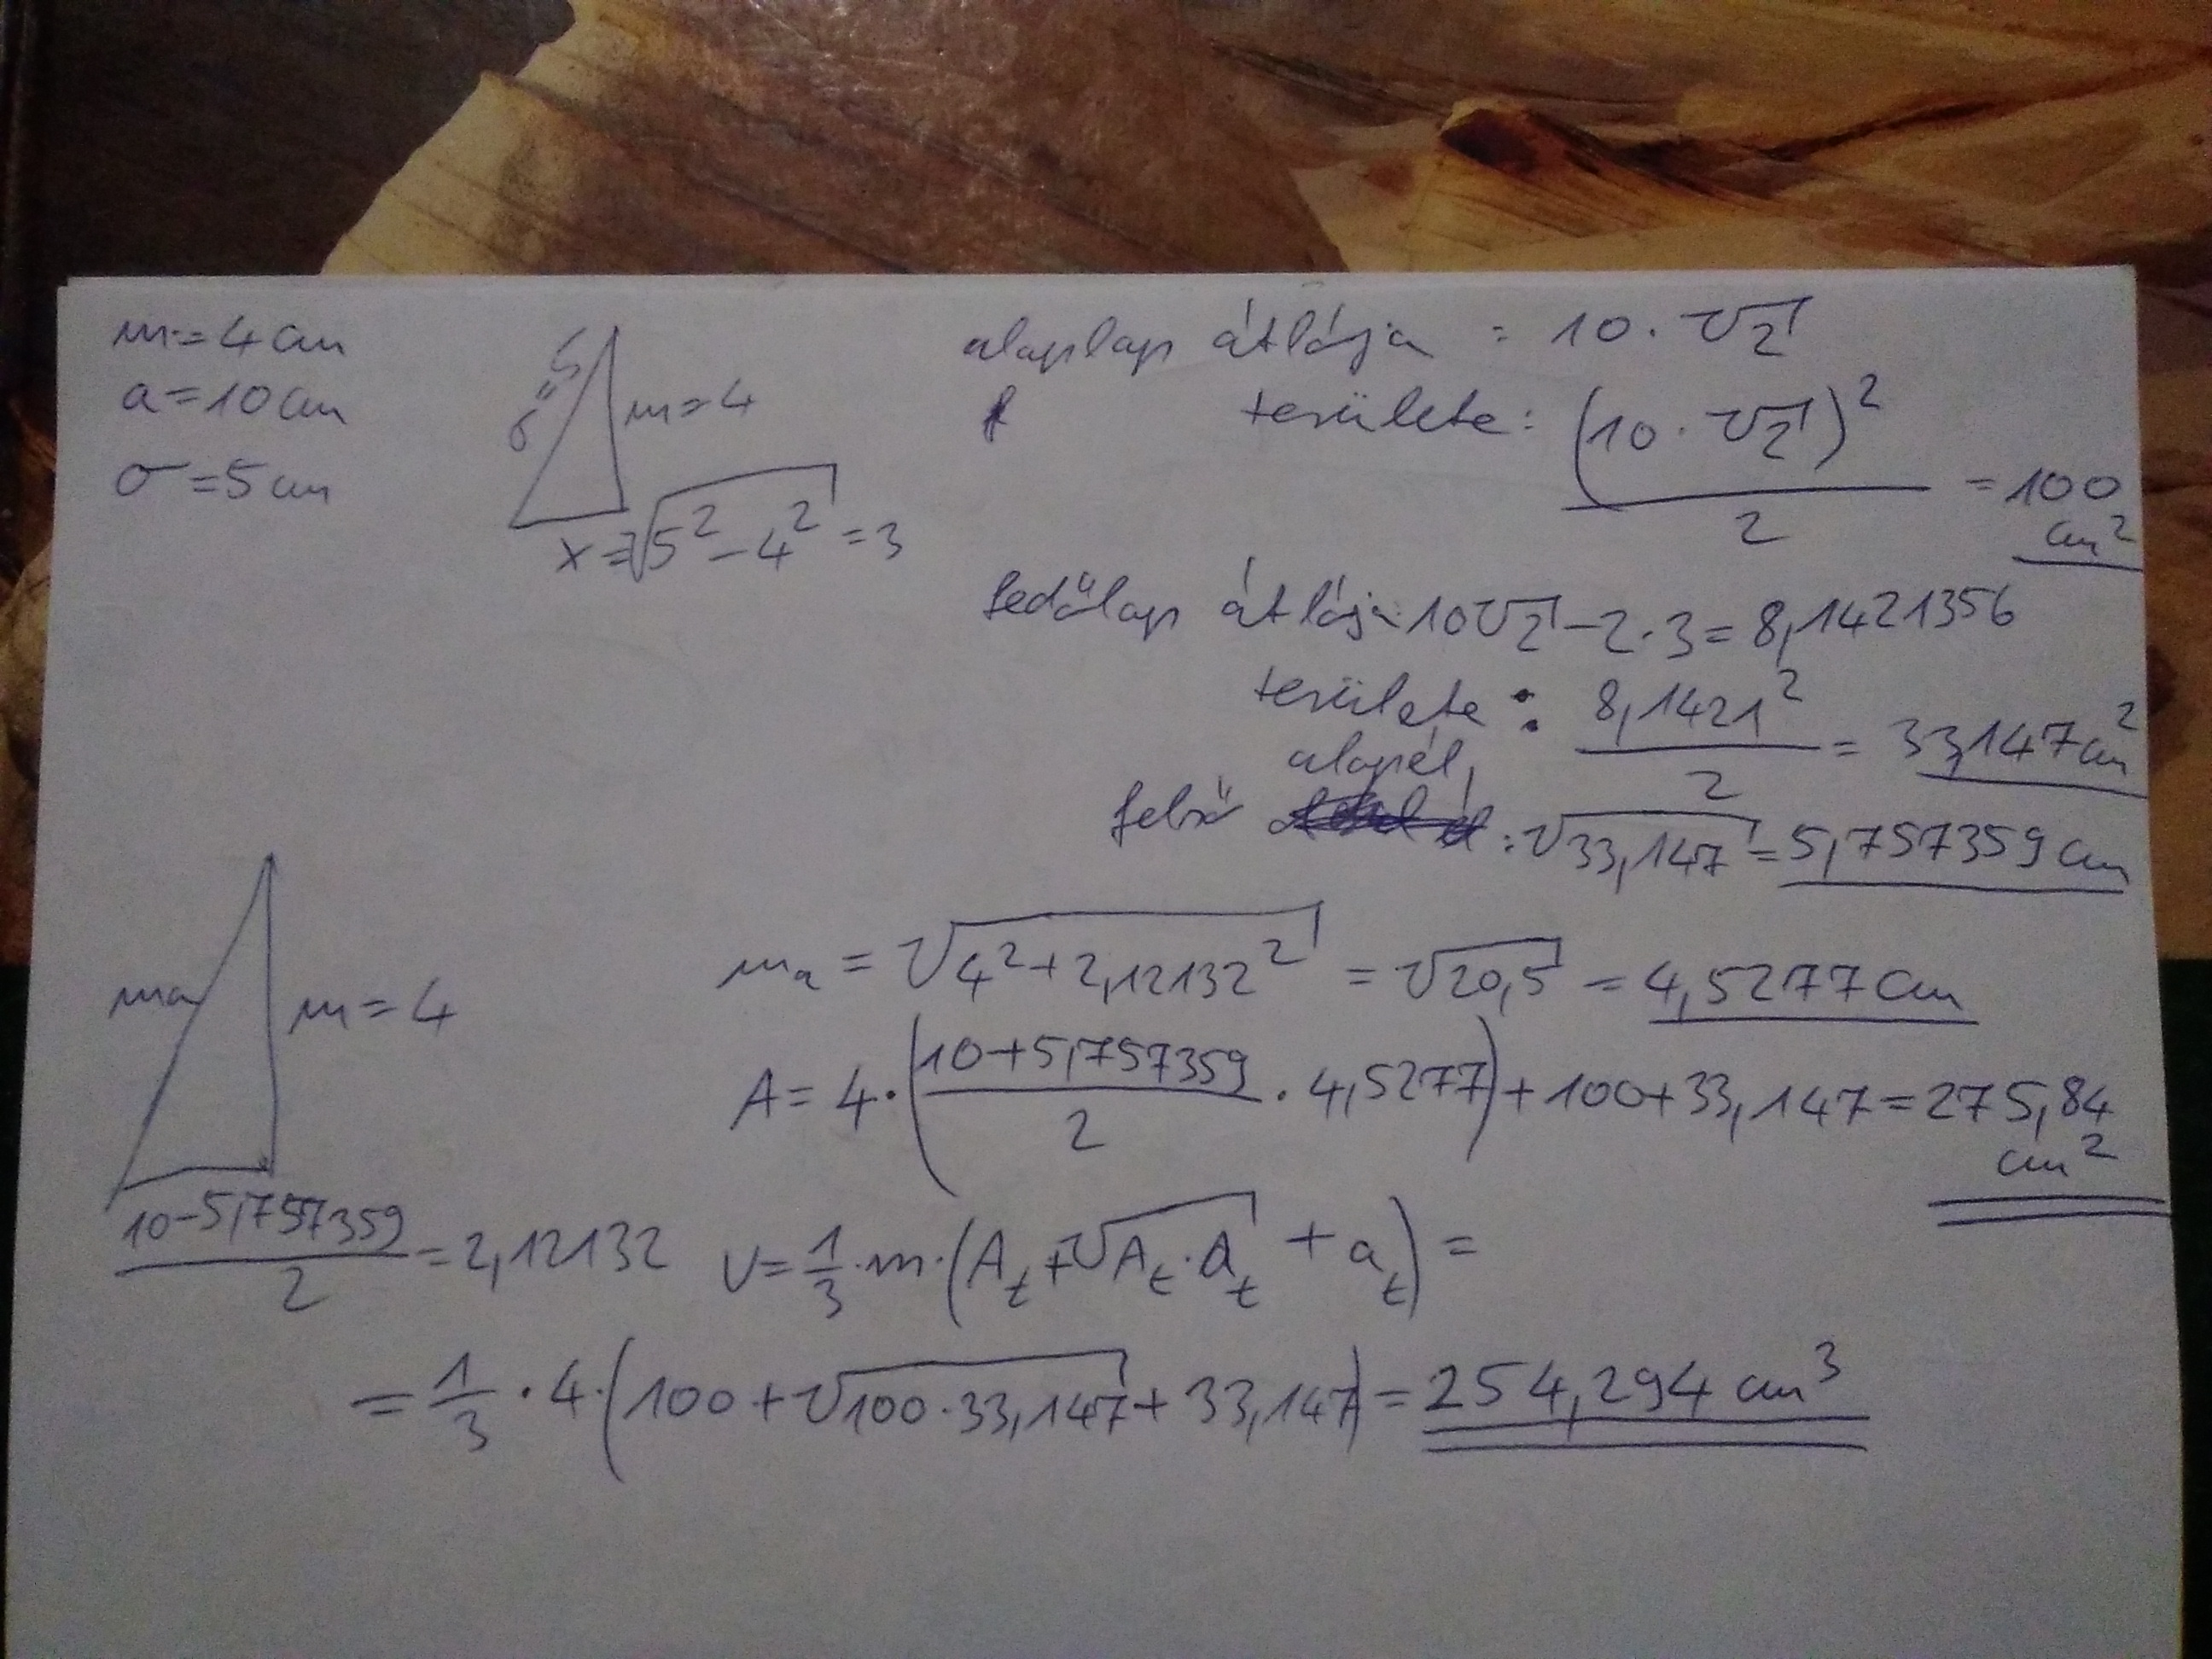 m=4cm
a=10cm
σ=5cm
σ=5
m=4
x=√5²-4²=3
alaplap átlója = 10·√2
területe: (10·√2)²/2 = 100 cm²
fedőlap átlója 10√2-2·3=8,1421356
területe: 8,1421²/2 = 33,147cm²
felső alapél: √33,147=5,757359cm
ma
m=4
(10-5,757359)/2=2,12132
ma = √4²+2,12132² = √20,5 = 4,5277cm
A=4·((10+5,757359)/2·4,5277)+100+33,147=275,84 cm²
V=1/3·m·(A_t+√A_t·a_t+a_t)=
=1/3·4·(100+√100·33,147+33,147)=254,294cm³